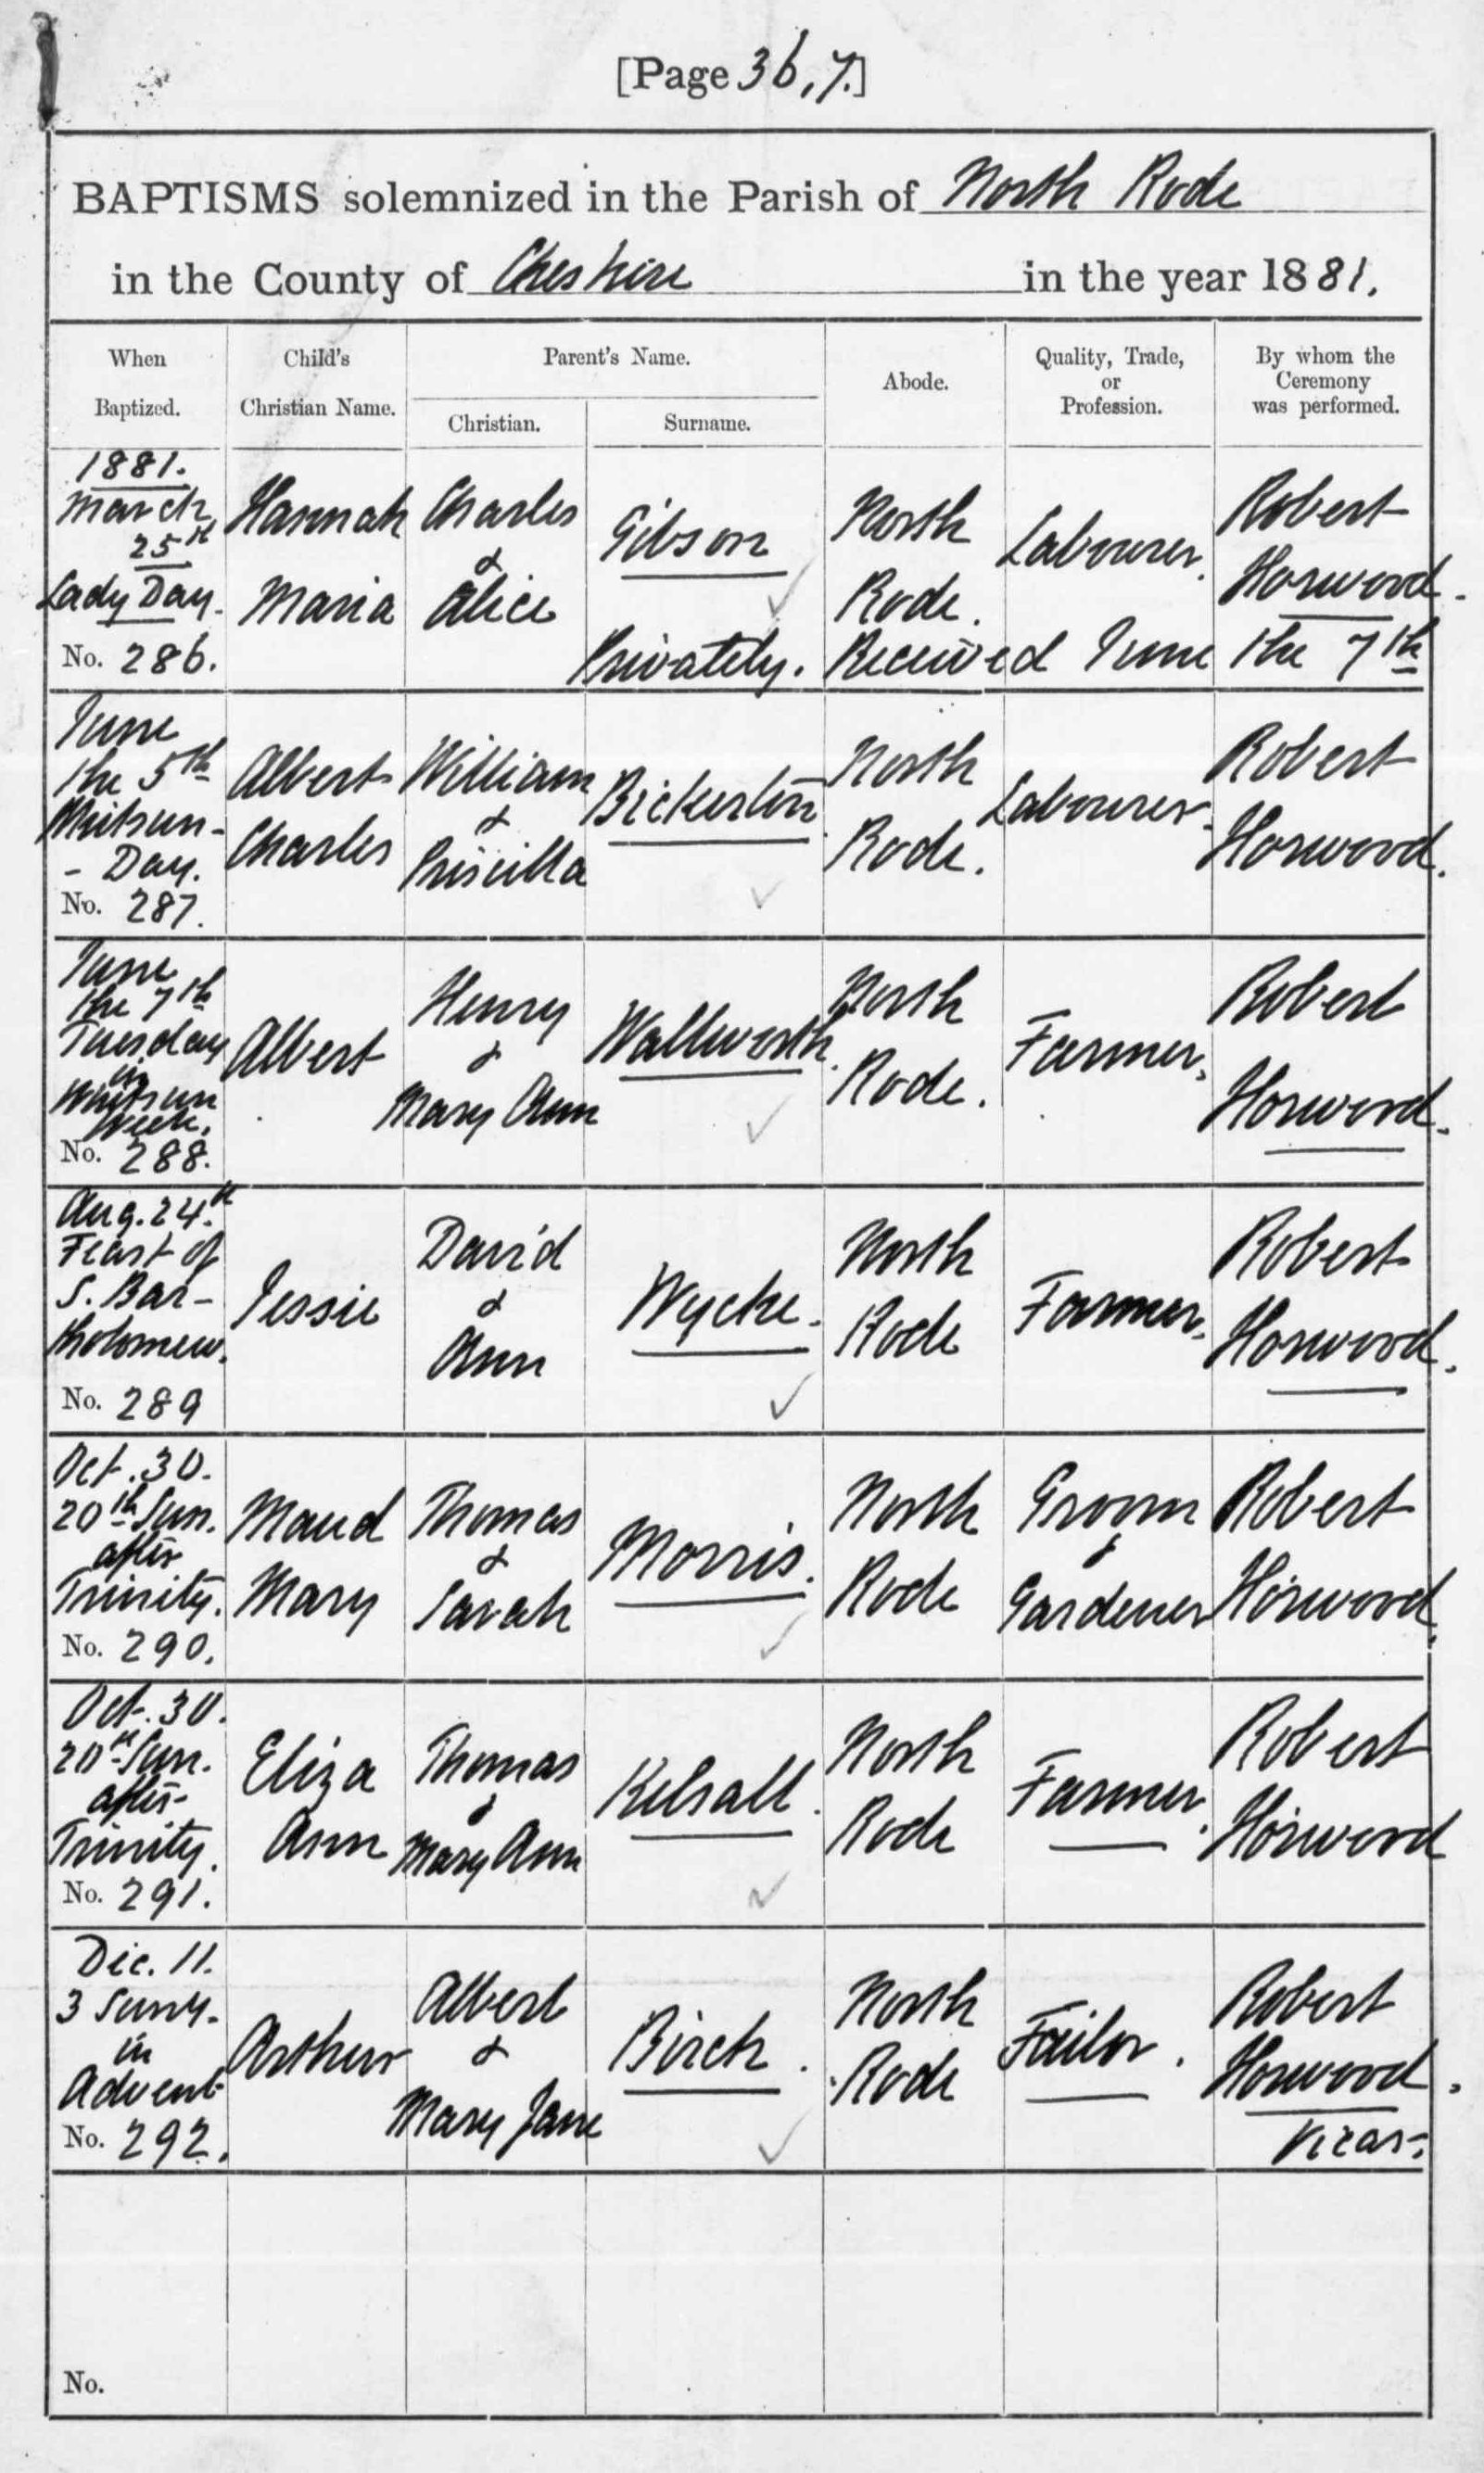 [Page 36,7.]
BAPTISMS solemnized in the Parish of North Rode
in the County of Cheshire in the year 1881.
When Baptized.
Child's Christian Name.
Parent's Name.
Christian.
Surname.
Abode.
Quality, Trade, or Profession.
By whom the Ceremony was performed.
1881.
March
25th
Lady Day.
No. 286.
Hannah
Maria
Charles
&
Alice
Gibson
North
Rode.
Labourer.
Robert
Horwood.
Privately. Received June the 7th
June
the 5th
Whitsun-
- Day.
No. 287.
Albert
Charles
William
&
Priscilla
Bickerton
North
Rode.
Labourer.
Robert
Horwood.
June
the 7th
Tuesday
in
Whitsun
Week.
No. 288.
Albert
Henry
&
Mary Ann
Wallworth.
North
Rode.
Farmer.
Robert
Horwood.
Aug. 24th
Feast of
S. Bar-
tholomew.
No. 289
Jessie
David
&
Ann
Wyche.
North
Rode
Farmer.
Robert
Horwood.
Oct. 30.
20th Sun.
after
Trinity.
No. 290.
Maud
Mary
Thomas
&
Sarah
Morris.
North
Rode
Groom
&
Gardener
Robert
Horwood.
Oct. 30.
20th Sun.
after
Trinity.
No. 291.
Eliza
Ann
Thomas
&
Mary Ann
Kelsall.
North
Rode
Farmer.
Robert
Horwood
Dec. 11.
3 Sundy.
in
Advent
No. 292.
Arthur
Albert
&
Mary Jane
Birch.
North
Rode
Tailor.
Robert
Horwood.
Vicar.
No.